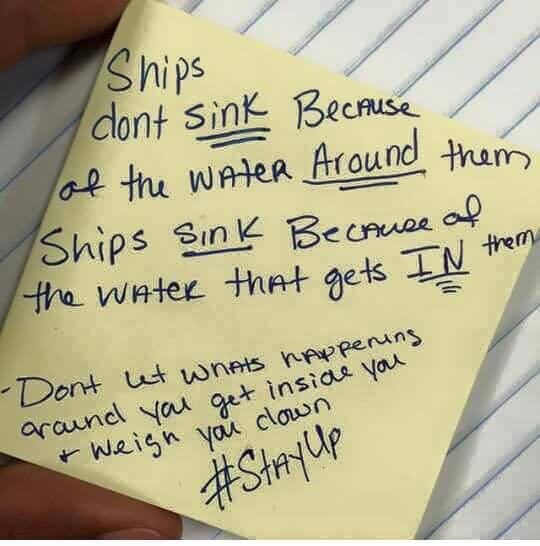 Ships
dont Sink Because
of the Water Around them
Ships Sink Because of
the Water that gets IN them
- Dont let whats happening
around you get inside you
+ weigh you down
#StayUp